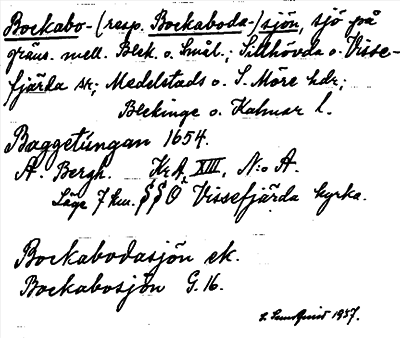 Bockabo-(resp. Bockaboda-)sjön, sjö på
gräns. mell. Blek. o. Smål.; Sillhövda o. Visse-
fjärda sk; Medelstads o. S. Möre hdr;
Blekinge o. Kalmar l.
Baggetungan 1654.
A. Bergh. KrA XIII, N:o A.
Läge 7 km. SSO Vissefjärda kyrka.
Bockabodasjön ek.
Bockabosjön G. 16.
1957.